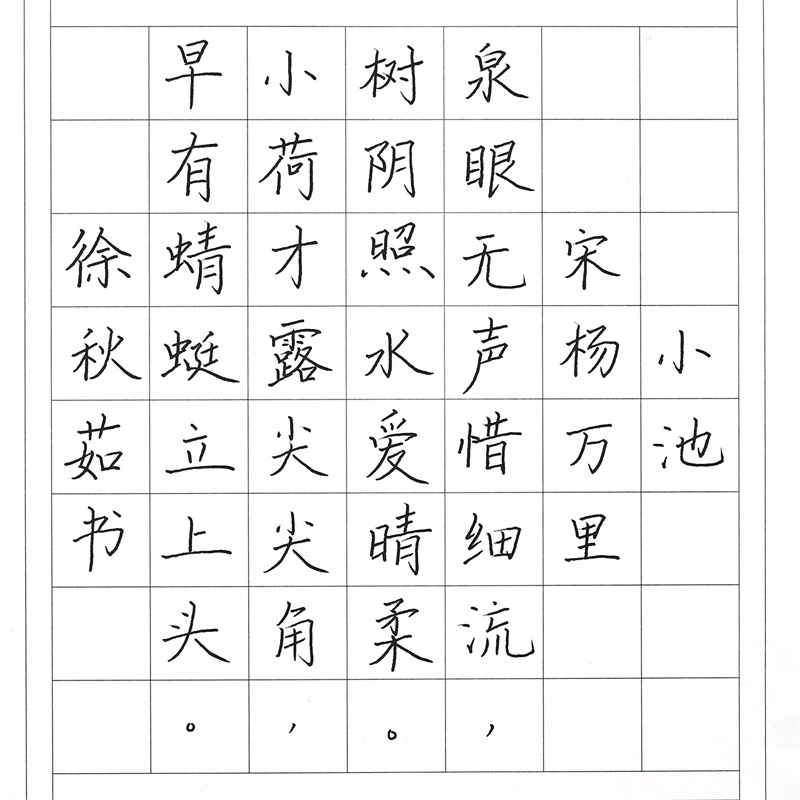 小池
宋杨万里
泉眼无声惜细流，
树阴照水爱晴柔。
小荷才露尖尖角，
早有蜻蜓立上头。
徐秋茹书